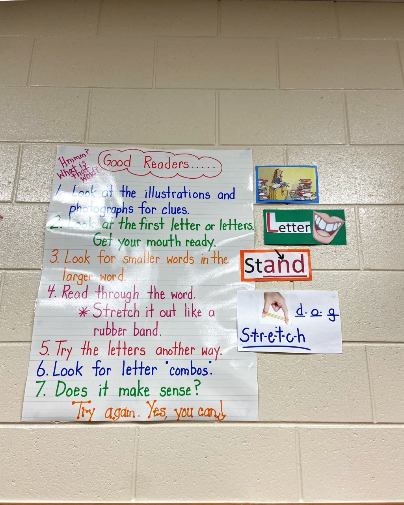 Hmmm?
What is
this
word?
Good Readers.....
1. Look at the illustrations and
photographs for clues.
2. Look at the first letter or letters.
Get your mouth ready.
3. Look for smaller words in the
larger word.
4. Read through the word.
* Stretch it out like a
rubber band.
5. Try the letters another way.
6. Look for letter "combos".
7. Does it make sense?
Try again. Yes, you can!
Letter
Stand
d.o.g
S-t-r-e-t-c-h